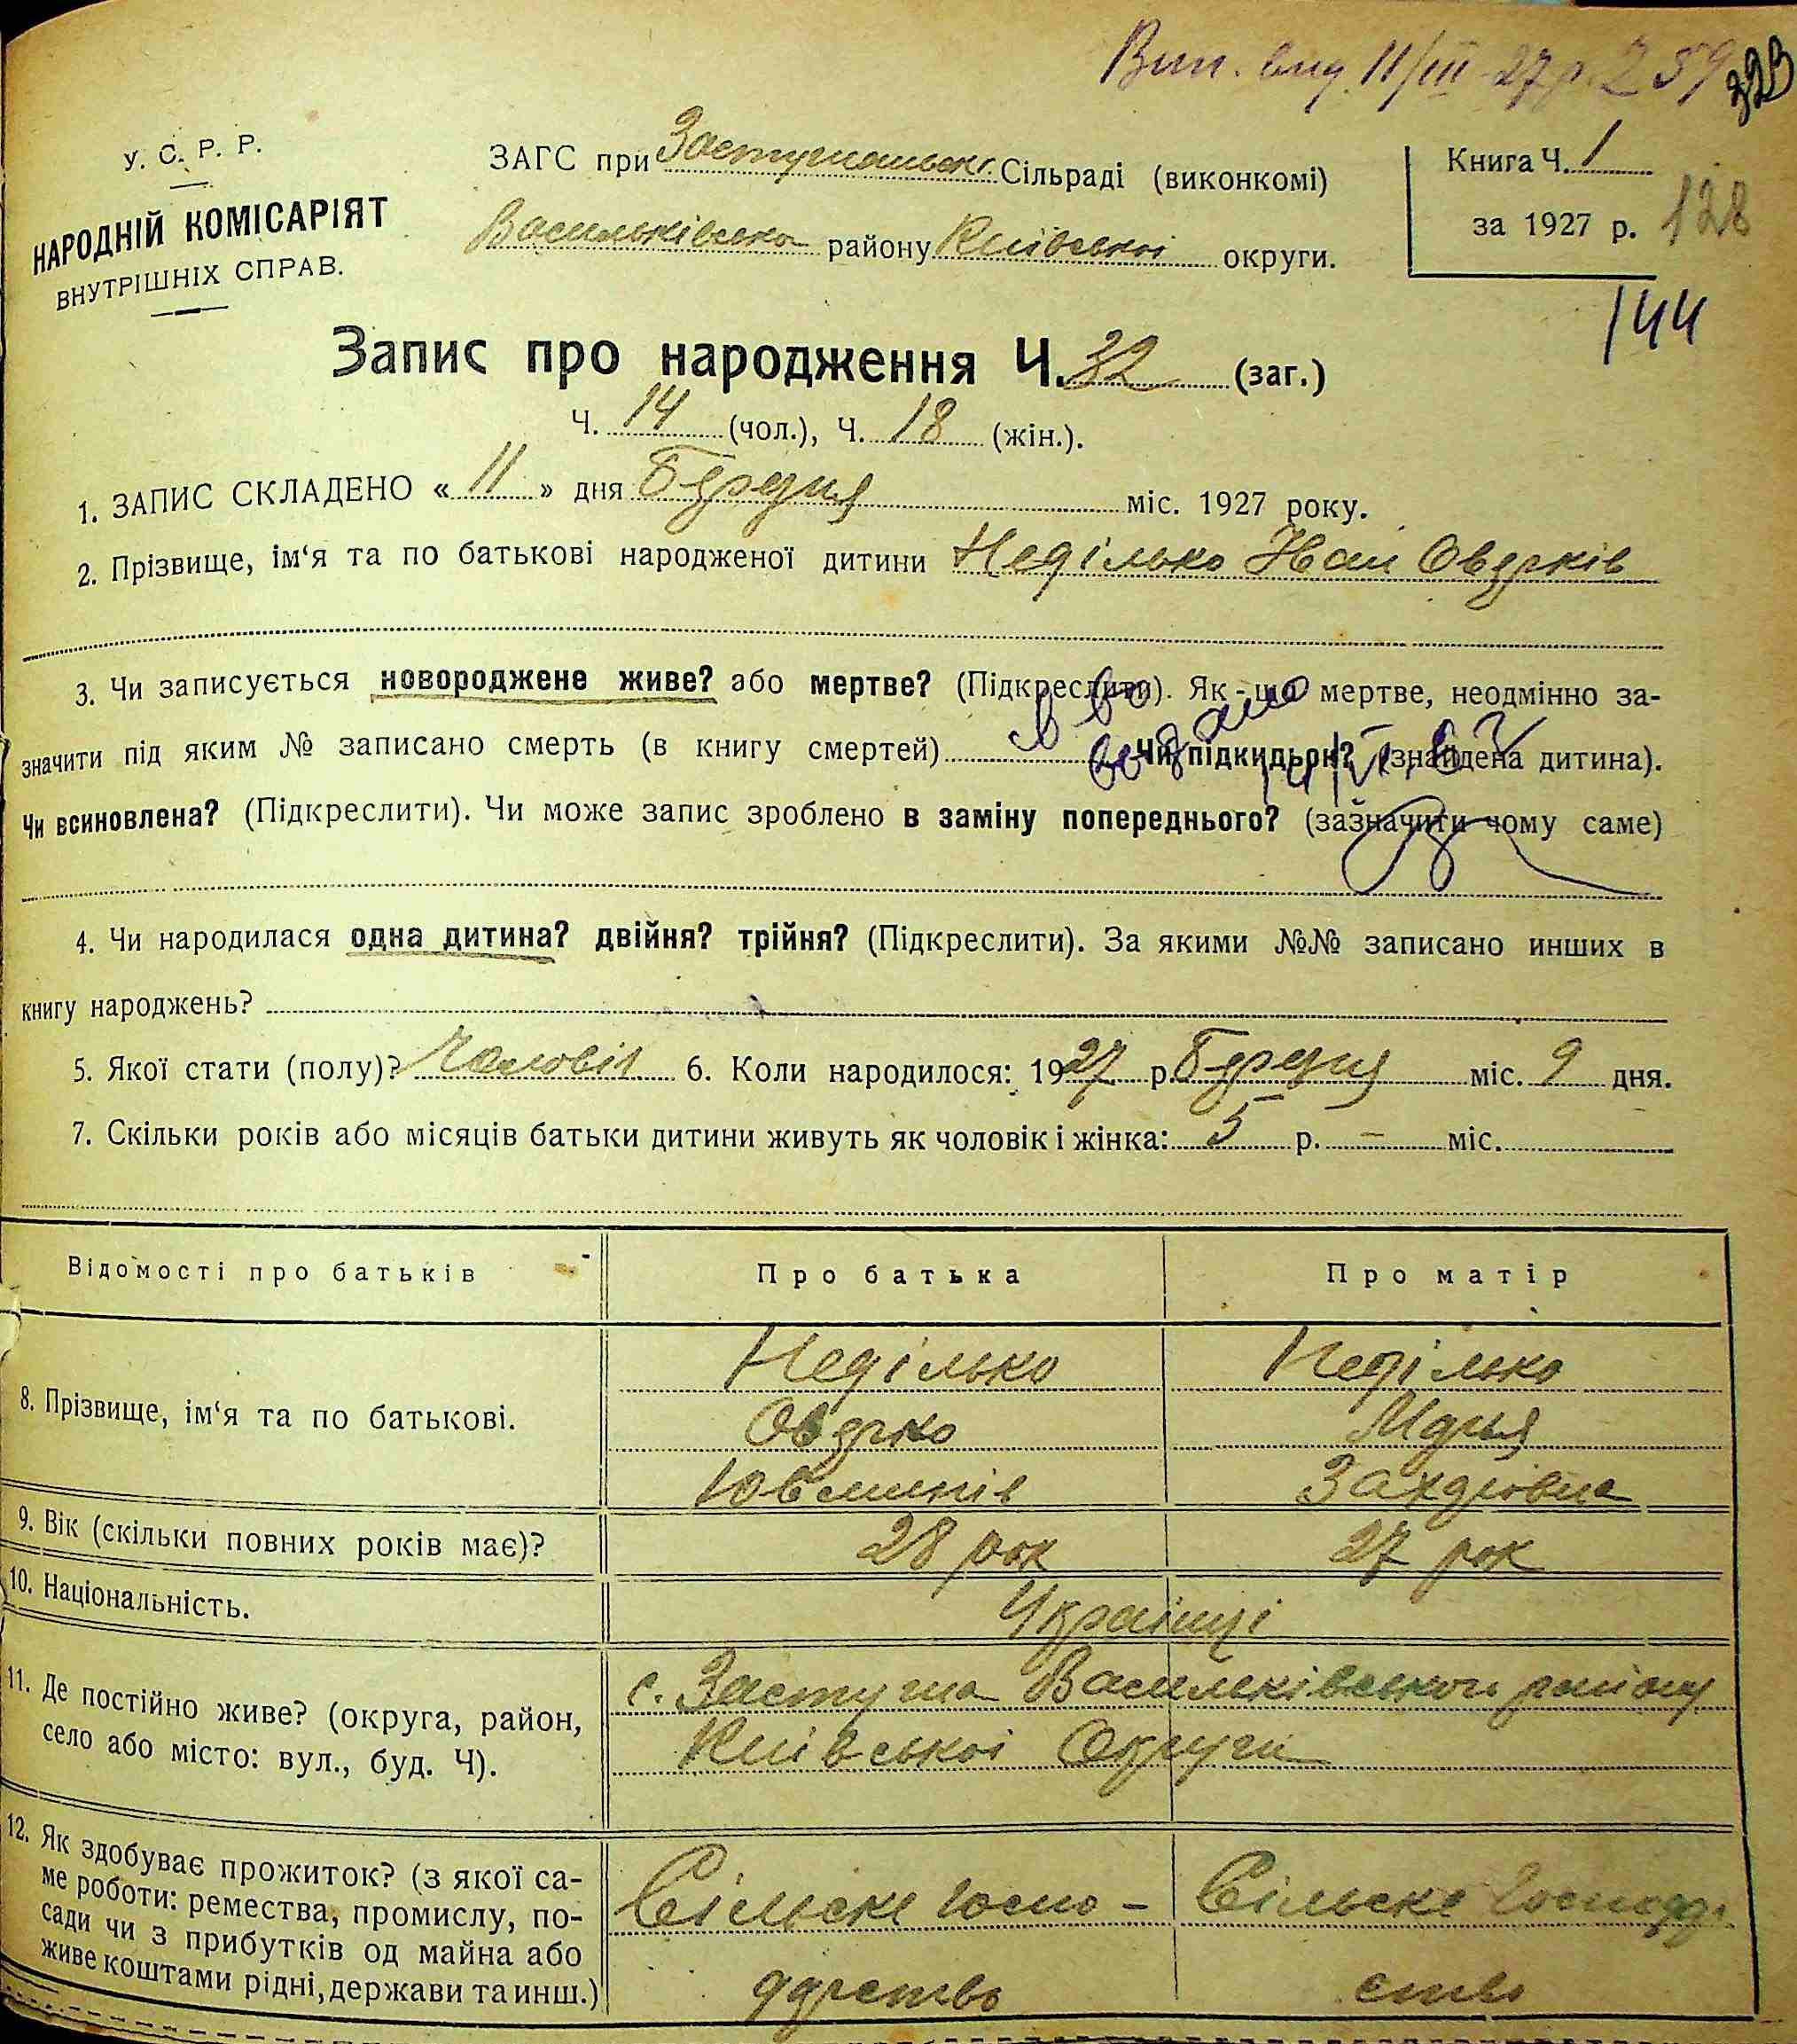 Вип. вид. 11/III 27 р. 259
323
У. С. Р. Р.
НАРОДНІЙ КОМІСАРІЯТ
ВНУТРІШНІХ СПРАВ.
ЗАГС при Застугнянськ. Сільраді (виконкомі)
Васильківсько району Київської округи.
Книга Ч. 1
за 1927 р. 128
144
Запис про народження Ч. 32 (заг.)
Ч. 14 (чол.), Ч. 18 (жін.).
1. ЗАПИС СКЛАДЕНО « 11 » дня Березня міс. 1927 року.
2. Прізвище, ім‘я та по батькові народженої дитини Неділько Оверків
3. Чи записується новороджене живе? або мертве? (Підкреслити). Як-що мертве, неодмінно за-
значити під яким № записано смерть (в книгу смертей) Чи підкидьок? (знайдена дитина).
Чи всиновлена? (Підкреслити). Чи може запис зроблено в заміну попереднього? (зазначити чому саме)
4. Чи народилася одна дитина? двійня? трійня? (Підкреслити). За якими №№ записано инших в
книгу народжень?
5. Якої стати (полу)? Чоловіч 6. Коли народилося: 1927 р. Березня міс. 9 дня.
7. Скільки років або місяців батьки дитини живуть як чоловік і жінка: 5 р. – міс.
Відомості про батьків Про батька Про матір
8. Прізвище, ім‘я та по батькові.
Неділько Неділько
Оверко
9. Вік (скільки повних років має)? 28 рок 27 рок
10. Національність. Українці
11. Де постійно живе? (округа, район,
село або місто: вул., буд. Ч).
с. Застугна Васильківського району
Київської Округи
12. Як здобуває прожиток? (з якої са-
ме роботи: ремества, промислу, по-
сади чи з прибутків од майна або
живе коштами рідні, держави та инш.)
Сільске госпо- Сільске
дарство ство